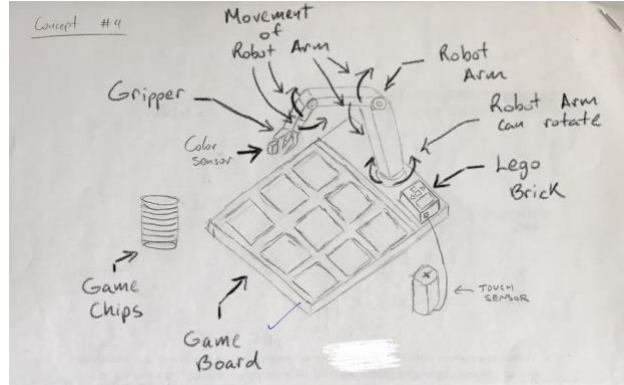 Concept #4
Movement
of
Robot Arm
Robot
Arm
Gripper
Robot Arm
can rotate
Color
sensor
Lego
Brick
Game
Chips
TOUCH
SENSOR
Game
Board